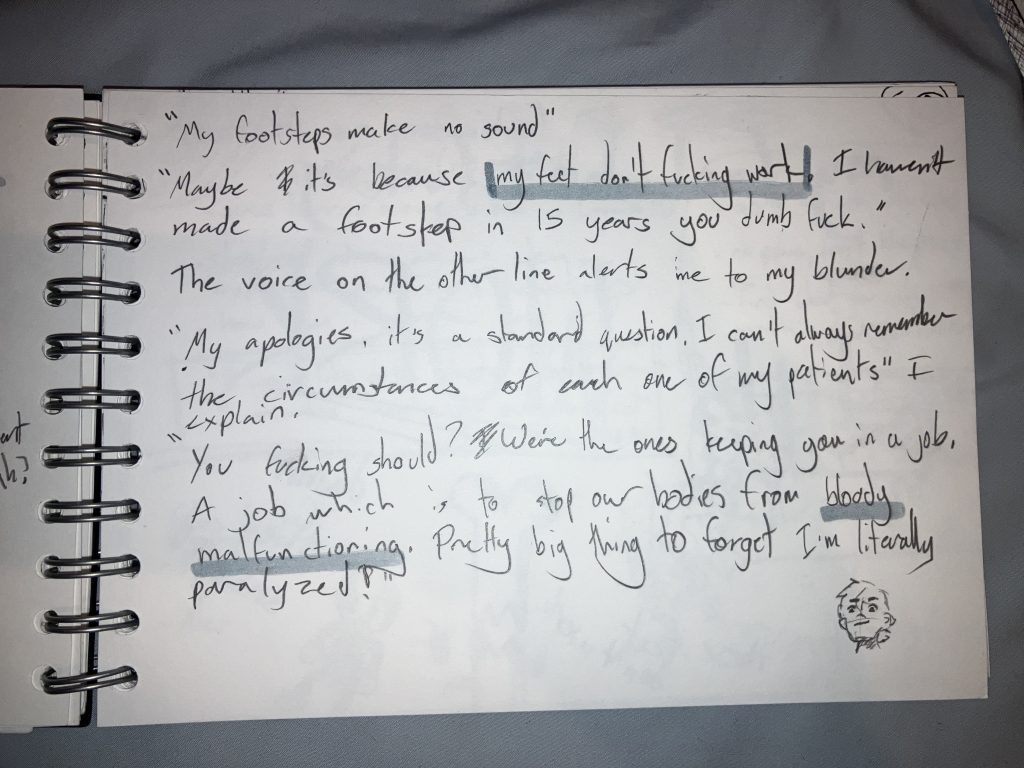 "My footsteps make no sound"
"Maybe it's because my feet don't fucking work. I haven't
made a footstep in 15 years you dumb fuck."
The voice on the other line alerts me to my blunder.
"My apologies, it's a standard question. I can't always remember
the circumstances of each one of my patients" I
explain.
"You fucking should? We're the ones keeping you in a job.
A job which is to stop our bodies from bloody
malfunctioning. Pretty big thing to forget I'm literally
paralyzed!"